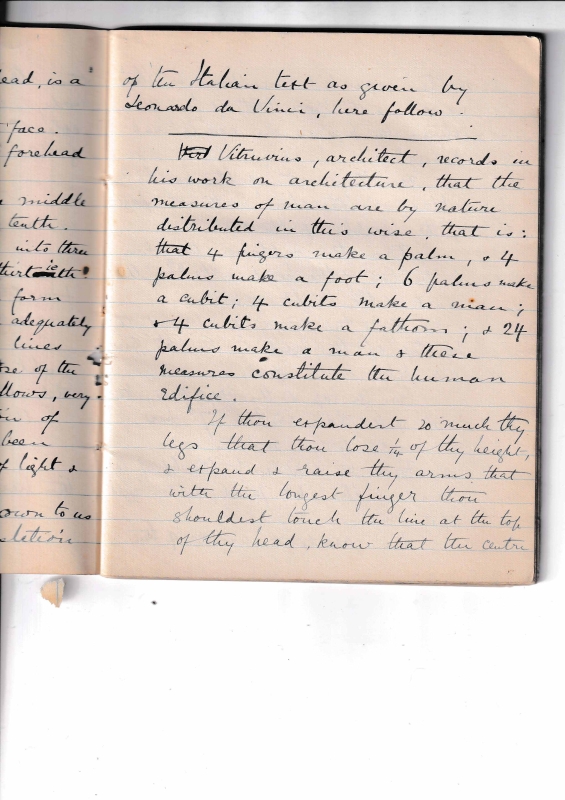 ead, is a
face.
forehead
middle
tenth.
into three
form
adequately
lines
se of the
llows, very
on of
been
& light &
own to us
of the Italian text as given by
Leonardo da Vinci, here follow.
Vitruvius, architect, records in
his work on architecture, that the
measures of man are by nature
distributed in this wise, that is:
that 4 fingers make a palm, & 4
palms make a foot; 6 palms make
a cubit; 4 cubits make a man;
& 4 cubits make a fathom; & 24
palms make a man & these
measures constitute the human
edifice.
If thou expandest so much thy
legs that thou lose 1/14 of thy height,
& expand & raise thy arms that
with the longest finger thou
shouldest touch the line at the top
of thy head, know that the centre